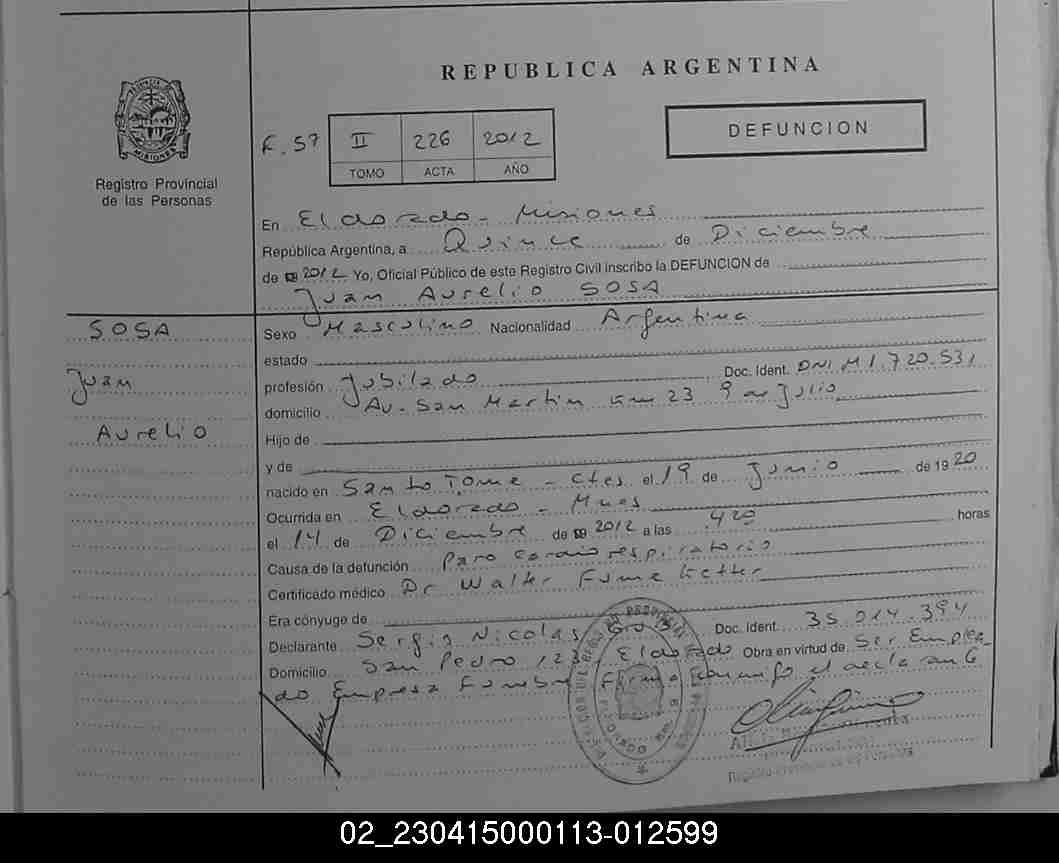 REPUBLICA ARGENTINA
PROVINCIA DE MISIONES
Registro Provincial
de las Personas
F. 57
II 226 2012
TOMO ACTA AÑO
DEFUNCION
En Eldorado - Misiones
República Argentina, a Quince de Diciembre
de 2012 Yo, Oficial Público de este Registro Civil inscribo la DEFUNCION de
Juan Aurelio SOSA
SOSA
Juan
Aurelio
Sexo Masculino Nacionalidad Argentina
estado
profesión Jubilado Doc. Ident. DNI M 1.720.531
domicilio Av. San Martin km 23 9 de Julio
Hijo de
y de
nacido en Santo Tome - Ctes el 19 de Junio de 1920
Ocurrida en Eldorado - Mnes
el 14 de Diciembre de 2012 a las 420 horas
Causa de la defunción Paro cardiorespiratorio
Certificado médico Dr Walter
Era cónyuge de
Declarante Sergio Nicolas Doc. Ident. 35.014.394
Domicilio San Pedro Eldorado Obra en virtud de Ser Emplea-
do Empresa Funebre Firma el declarante
02_230415000113-012599